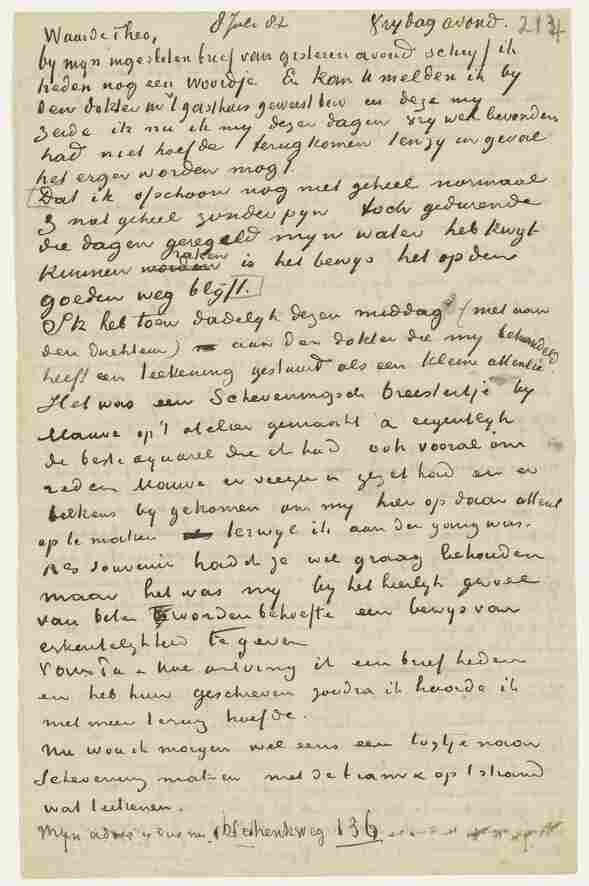 8 Juli 82 Vrydag avond. 213
Waarde Theo,
by myn ingesloten brief van gisteren avond schryf ik
heden nog een woordje En kan U melden ik by
den dokter in 't gasthuis geweest ben en deze my
zeide ik nu ik my dezer dagen vry wel bevonden
had niet hoefde terugkomen tenzy in geval
het erger worden mogt.
Dat ik ofschoon nog niet geheel normaal
& niet geheel zonder pyn toch gedurende
die dagen geregeld myn water heb kwyt
raken
kunnen worden is het bewys het op den
goeden weg blyft.
Ik heb toen dadelyk dezen middag (niet aan
den Direkteur) aan den dokter die my behandeld
heeft een teekening gestuurd als een kleine attentie
Het was een Schevenings breistertje by
Mauve op't atelier gemaakt & eigentlyk
de beste aquarel die ik had ook vooral om
reden Mauve er veegen in gezet had en er
telkens by gekomen om my hier op daar attent
op te maken terwyl ik aan den gang was.
Als souvenir had ik ze wel graag behouden
maar het was my by het heerlyk gevoel
van beter te worden behoefte een bewys van
erkentelykheid te geven
Van Pa & Moe ontving ik een brief heden
en heb hun geschreven zoodra ik hoorde ik
niet meer terug hoefde.
Nu wou ik morgen wel eens een togtje naar
Schevening maken met de tram & op 't strand
wat teekenen.
Myn adres is dus nu Schenkweg 136